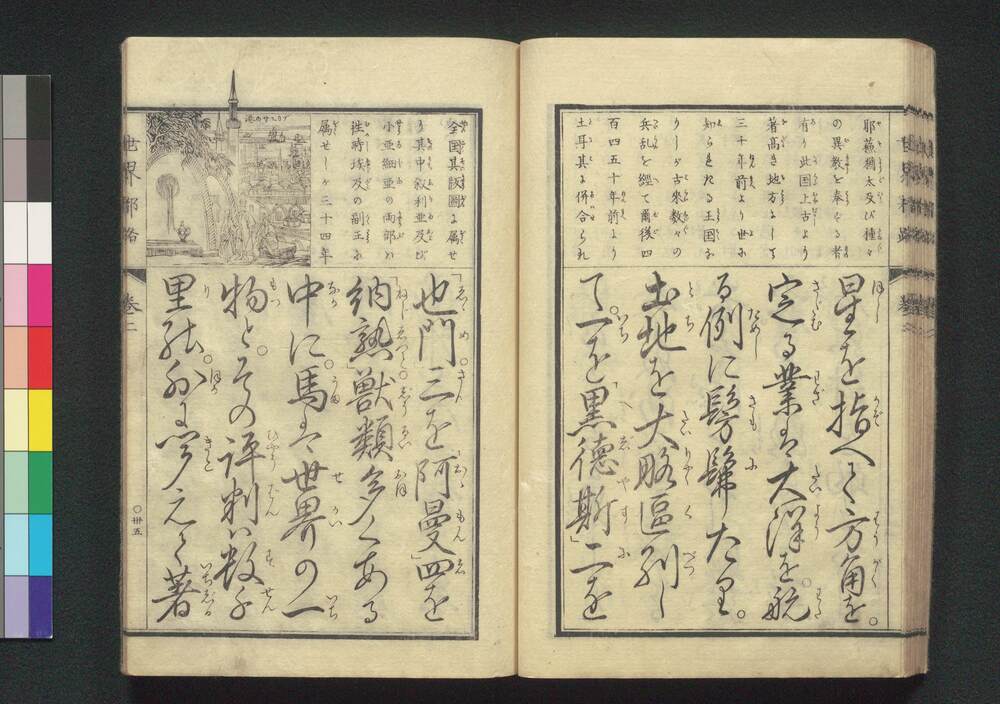 耶蘇猶太及び種々
の異教を奉ずる者
有り此国上古より
著高き地方にして
三十年前より世に
知られたる王国な
りしが古来数々の
兵乱を経て爾後四
百四五十年前より
土耳其に併合られ
星を指へて方角を。
定る業は大洋を。航
る例に髣髴たり。
土地を大略區別し
て。一を「黒徳斯」二を
世界都路
巻二
全国其版圖に属せ
り其中叙利亜及び
小亜細亜の両部は
往時埃及の副王に
属せしが三十四年
也門」。三を「阿曼」四を
「納熱」獣類多くある
中に。馬は世界の一
物と。その評判は数千
里の。外に聞えて著
〇卅五